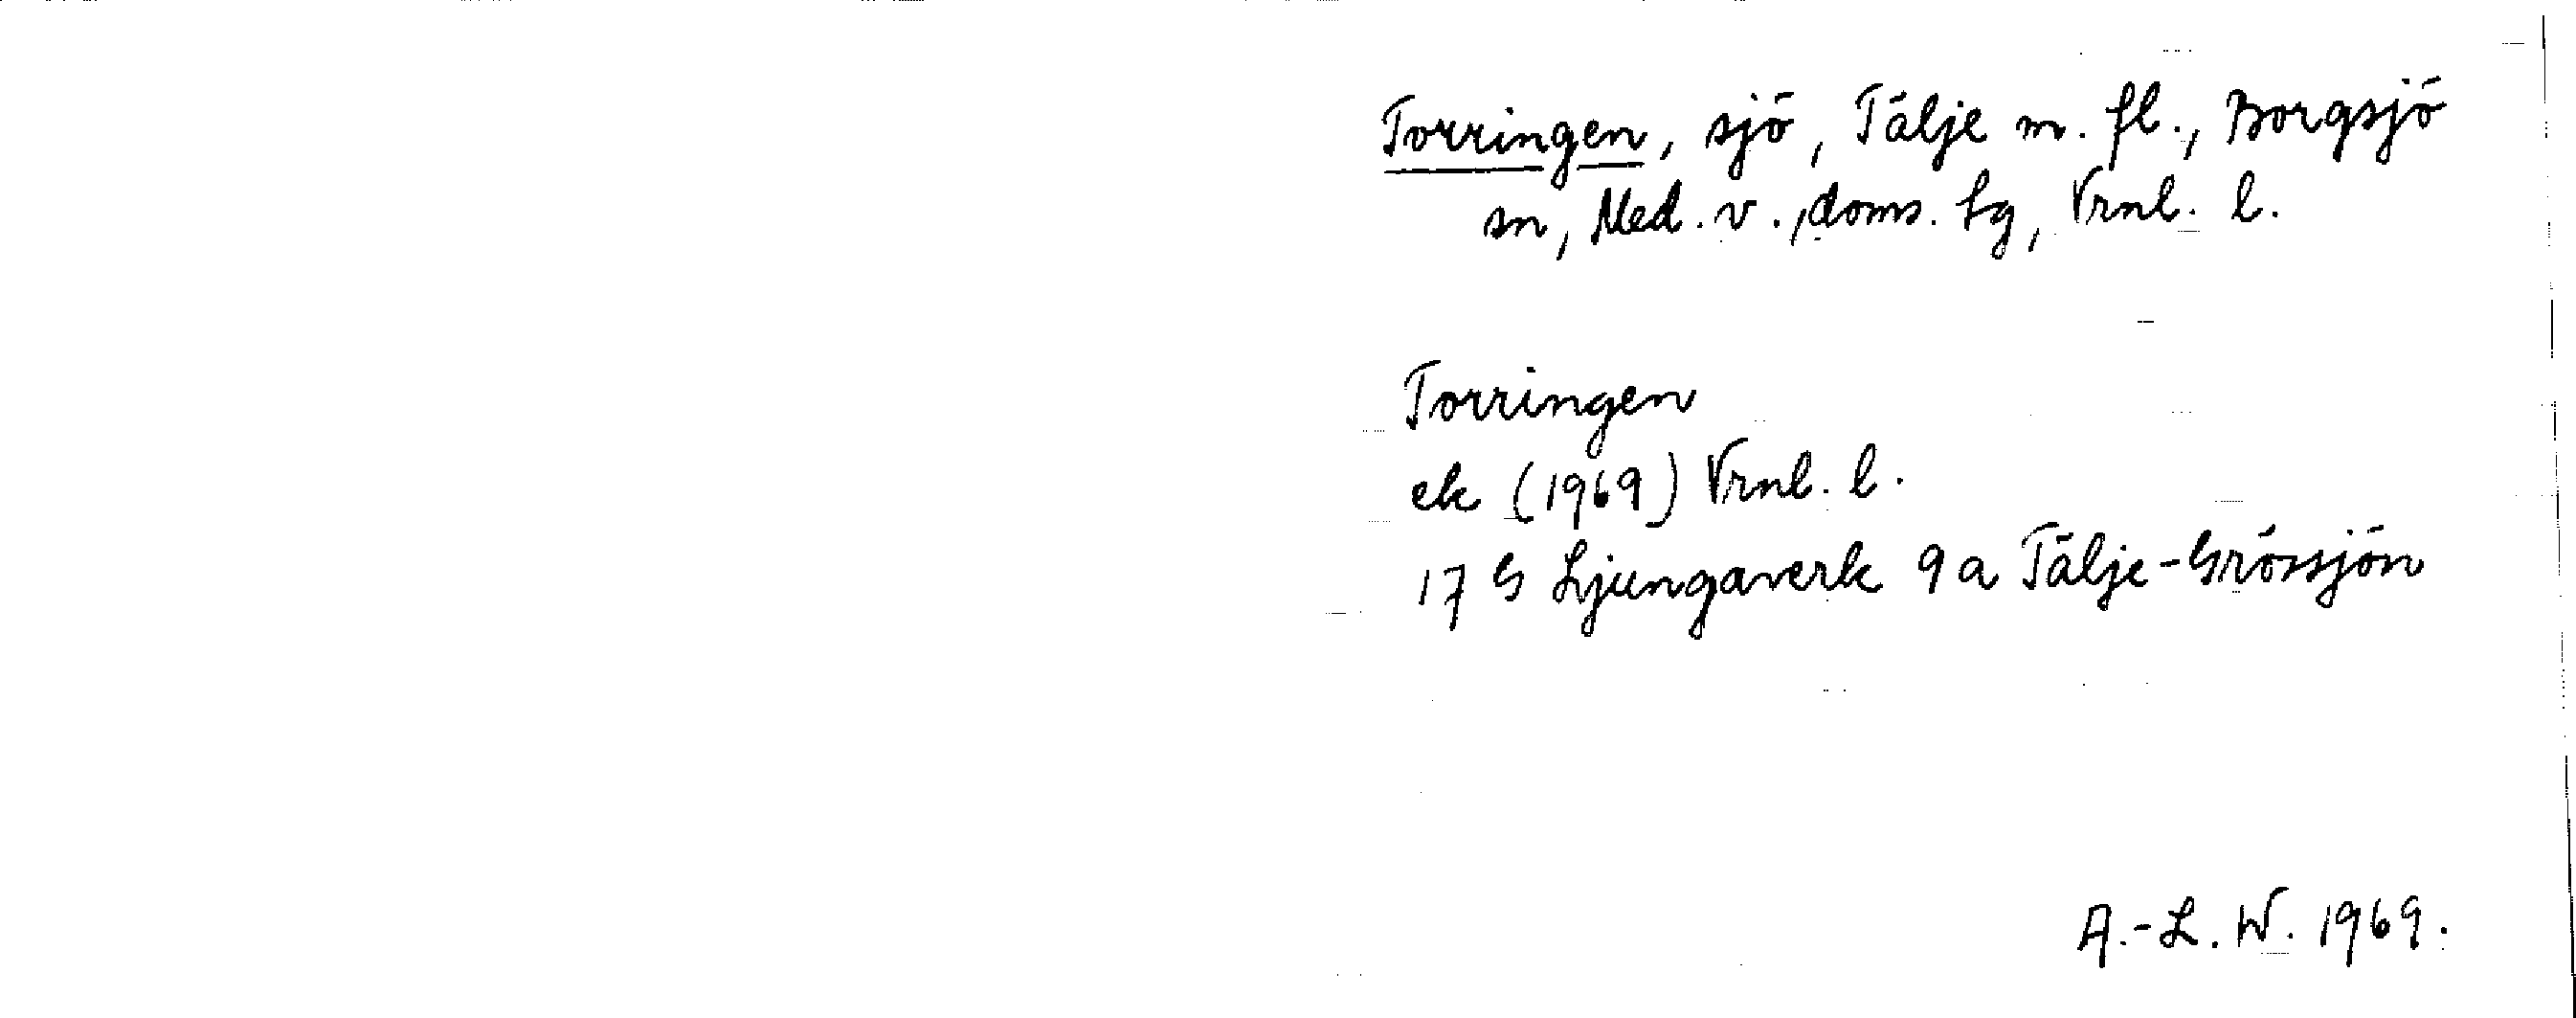 Torringen, sjö, Tälje m. fl., Borgsjö
sn, Med. v., doms. sg, Vrnl. l.
Torringen
ek (1969) Vrnl. l.
17 G Ljungaverk 9 a Tälje-Grössjön
A.-L. W. 1969.